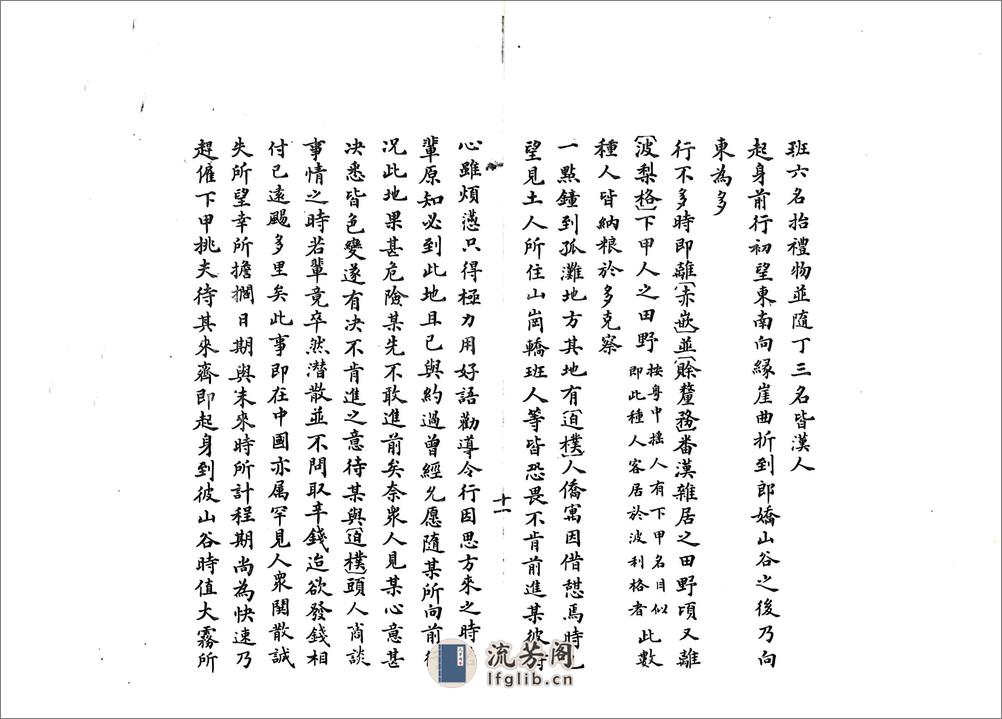 班六名抬禮物並隨丁三名皆漢人
起身前行初望東南向緣崖曲折到郎嬌山谷之後乃向
東為多
行不多時即離〔赤嵌〕並〔賒釐務〕番漢雜居之田野頃又離
〔波梨格〕下甲人之田野按粵中搖人有下甲名目似即此種人客居於波利格者此數
種人皆納粮於多克察
一點鐘到孤灘地方其地有〔迫樸〕人僑寓因偕憇焉時
望見土人所住山崗轎班人等皆恐畏不肯前進某彼
十一
心雖煩懑只得極力用好語勸導令行因思方來之時
輩原知必到此地且已與約過曾經允愿隨某所向前
況此地果甚危險某先不敢進前矣奈衆人見某心意甚
决悉皆色變遂有决不肯進之意待某與〔迫樸〕頭人商談
事情之時若輩竟卒然潛散並不問取辛錢迨欲發錢相
付已遠颺多里矣此事即在中國亦属罕見人衆閧散誠
失所望幸所擔擱日期與未來時所計程期尚為快速乃
趕僱下甲挑夫待其來齊即起身到彼山谷時值大霧所
流芳阁
lfglib.cn